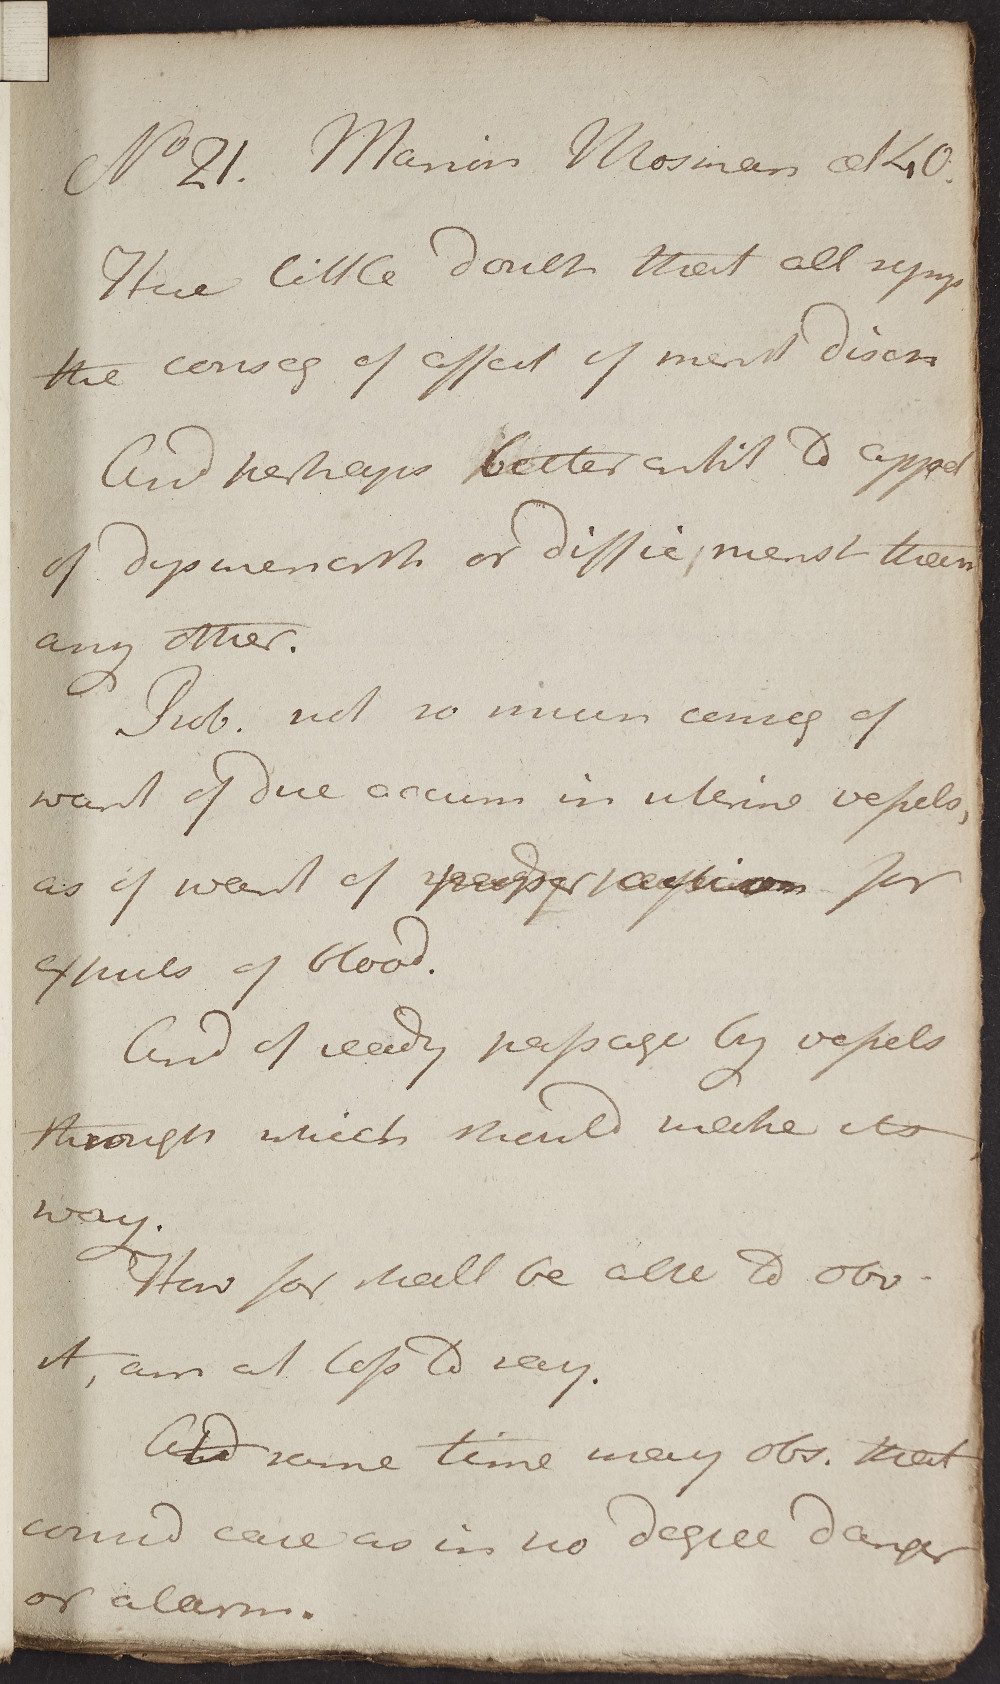 No 21. Marion Mosman æt 40.
Have little doubt that all symp
the conseq of affect of menst discn
And perhaps better entit to appel
of dysmenorrh or diffic menst than
any other.
Prob. not so much conseq of
want of due accum in uterine vessels,
as of want of for
expuls of blood.
And of ready passage by vessels
through which should make its
way.
How far shall be able to obv-
it, am at loss to say.
At same time may obs. that
consid case as in no degree danger
or alarm.